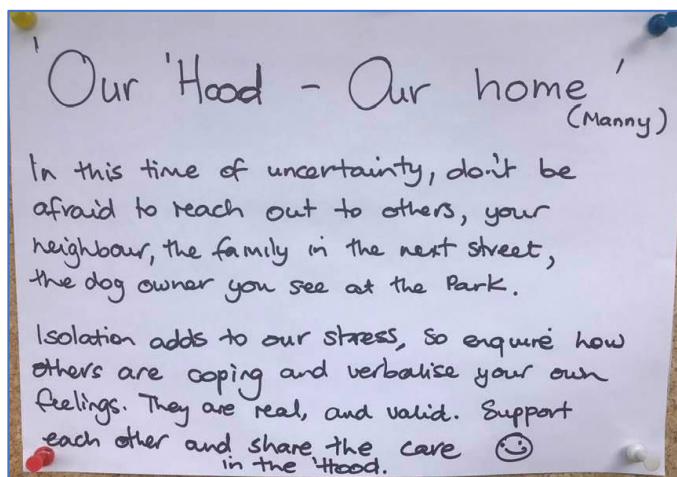 'Our 'Hood - Our home'
(Manny)
In this time of uncertainty, don't be
afraid to reach out to others, your
neighbour, the family in the next street,
the dog owner you see at the Park.
Isolation adds to our stress, so enquire how
others are coping and verbalise your own
feelings. They are real, and valid. Support
each other and share the care ☺
in the 'Hood.